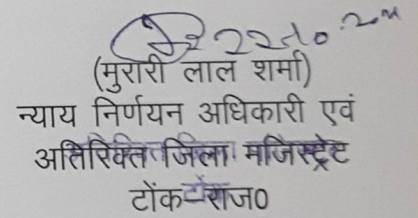 (मुरारी लाल शर्मा)
न्याय निर्णयन अधिकारी एवं
अतिरिक्त जिला मजिस्ट्रेट
टोंक राज0